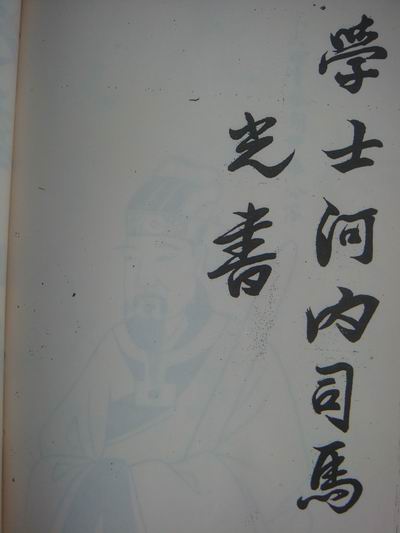 學士河內司馬
光書